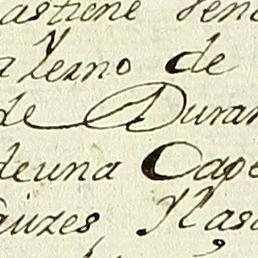 astiene
alerno de
de Duran
deuna Cape
auzes, Y las